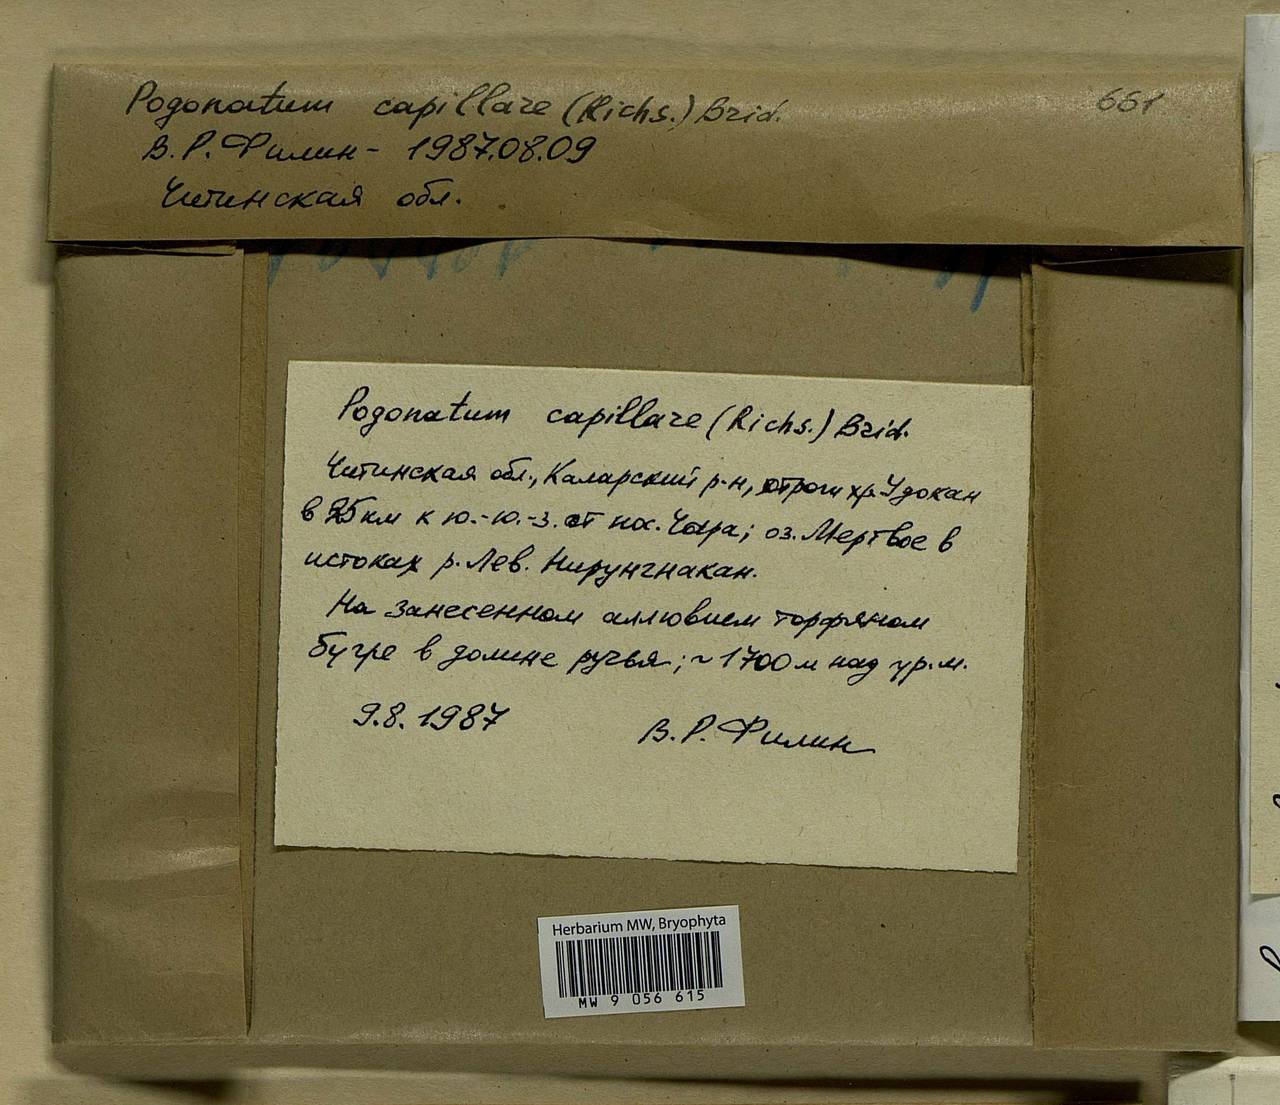 Pogonatum capillare (Richs.) Brid. 661
В.Р. Филин - 1987.08.09
Читинская обл.
Pogonatum capillare (Richs.) Brid.
Читинская обл., Каларский р-н, отроги хр. Удокан
в 25 км к ю.-ю.-з. от пос. Чара; оз. Мертвое в
истоках р. Лев. Нирунгнакан.
На занесенном аллювием торфяном
бугре в долине ручья; ~ 1700 м над ур. м.
9.8.1987 В.Р. Филин
Herbarium MW, Bryophyta
MW 9 056 615